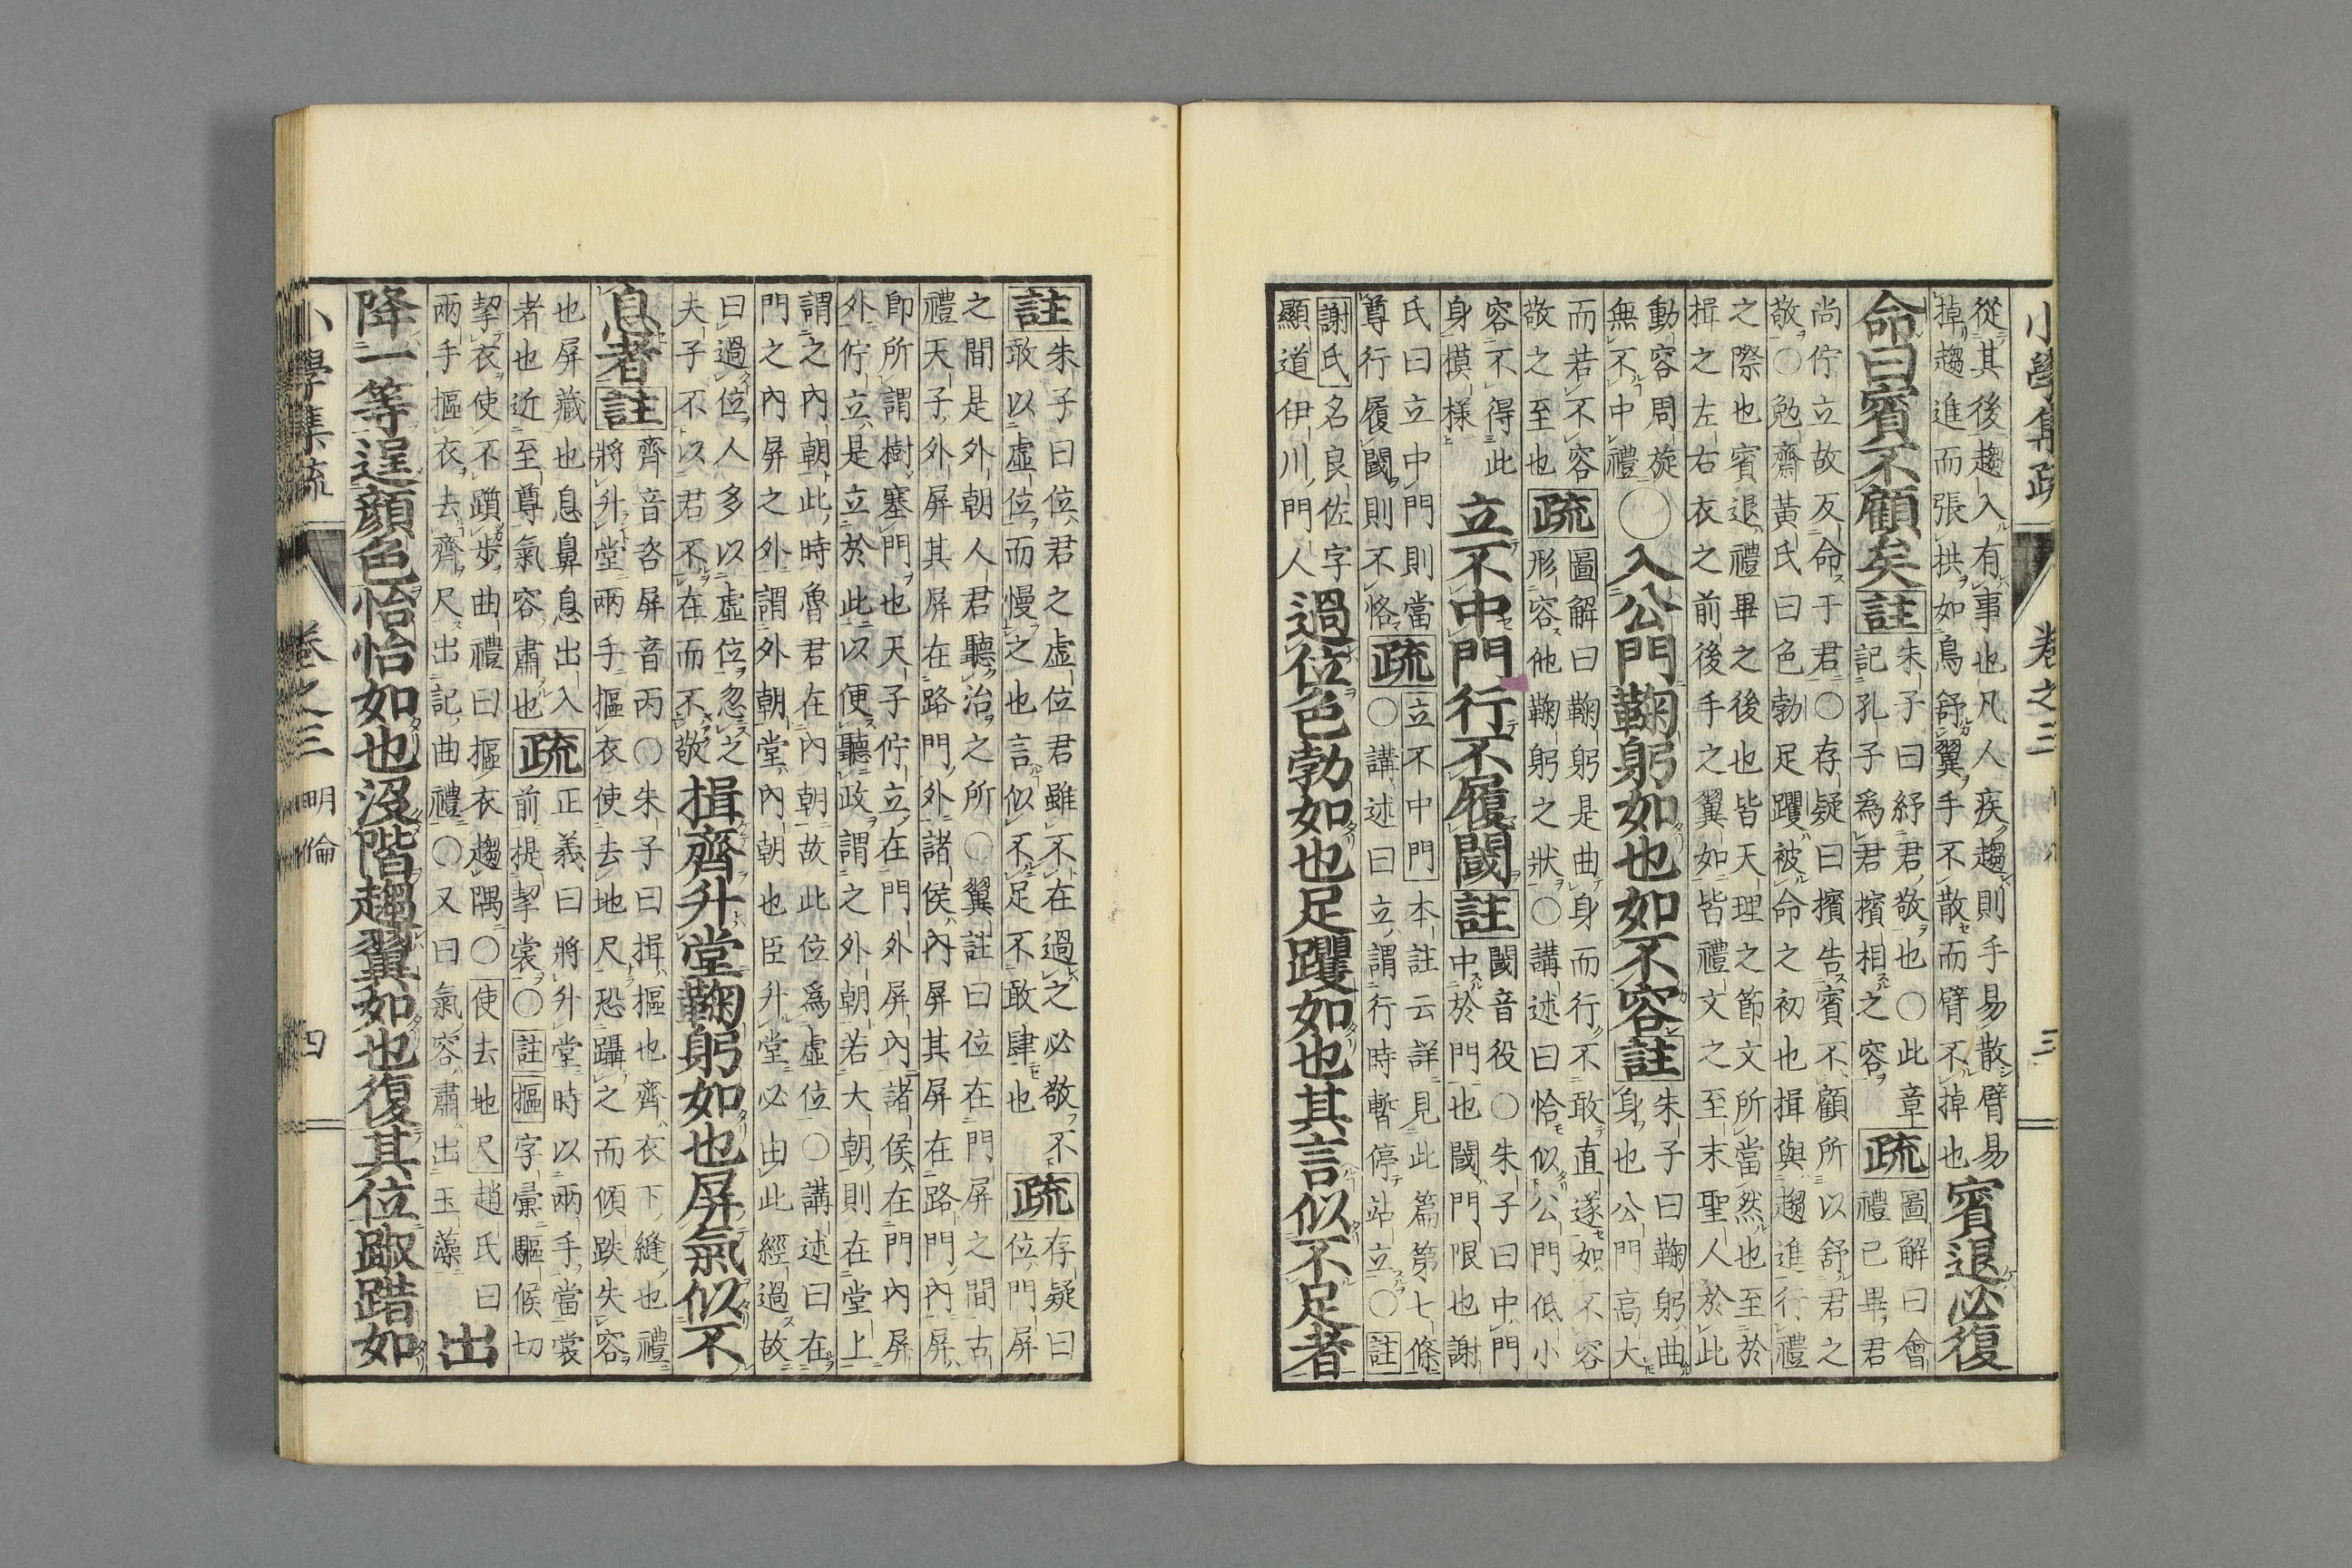 小學集疏 卷之三 三
從其後趨入有事也凡人疾趨則手易散臂易
掉趨進而張拱如鳥舒翼手不散而臂不掉也
賓退必復
命曰賓不顧矣註
朱子曰紓君敬也○此章
記孔子爲君擯相之容
疏
圖解曰會
禮已畢君
尚佇立故反命于君○存疑曰擯告賓不顧所以舒君之
敬○勉齋黃氏曰色勃足躩被命之初也揖與趨進行禮
之際也賓退禮畢之後也皆天理之節文所當然也至於
揖之左右衣之前後手之翼如皆禮文之至末聖人於此
動容周旋
無不中禮
○入公門鞠躬如也如不容註
朱子曰鞠躬曲
身也公門高大
而若不容
敬之至也
疏
圖解曰鞠躬是曲身而行不敢直遂如不容
形容他鞠躬之狀○講述曰恰似公門低小
容不得此
身模樣
立不中門行不履閾註
閾音役○朱子曰中門
中於門也閾門限也謝
氏曰立中門則當
尊行履閾則不恪
疏
立不中門本註云詳見此篇第七條
○講述曰立謂行時暫停站立○註
謝氏名良佐字
顯道伊川門人
過位色勃如也足躩如也其言似不足者
註
朱子曰位君之虛位君雖不在過之必敬不
敢以虛位而慢之也言似不足不敢肆也
疏
存疑曰
位門屏
之間是外朝人君聽治之所○翼註曰位在門屏之間古
禮天子外屏其屏在路門外諸侯內屏其屏在路門內屏
卽所謂樹塞門也天子佇立在門外屏內諸侯在門內屏
外佇立是立於此以便聽政謂之外朝若大朝則在堂上
謂之內朝此時魯君在內朝故此位爲虛位○講述曰在
門之內屏之外謂外朝堂內朝也臣升堂必由此經過故
曰過位人多以虛位忽之
夫子不以君不在而不敬
揖齊升堂鞠躬如也屏氣似不
息者註
齊音咨屏音丙○朱子曰揖摳也齊衣下縫也禮
將升堂兩手摳衣使去地尺恐躡之而傾跌失容
也屏藏也息鼻息出入
者也近至尊氣容肅也
疏
正義曰將升堂時以兩手當裳
前提挈裳○註摳字彙驅候切
挈衣使不躓步曲禮曰摳衣趨隅○使去地尺趙氏曰
兩手摳衣去齊尺出記曲禮○又曰氣容肅出玉藻
出
降一等逞顏色怡怡如也沒階趨翼如也復其位踧踖如
小學集疏 卷之三 明倫 四